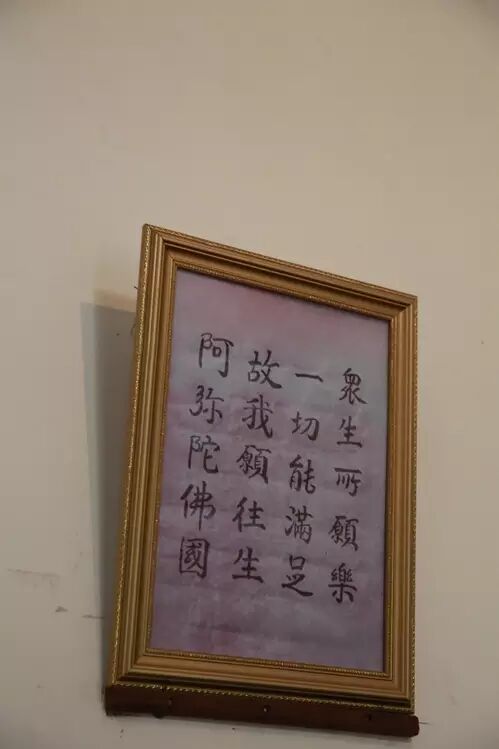 眾生所願樂
一切能滿足
故我願往生
阿弥陀佛國